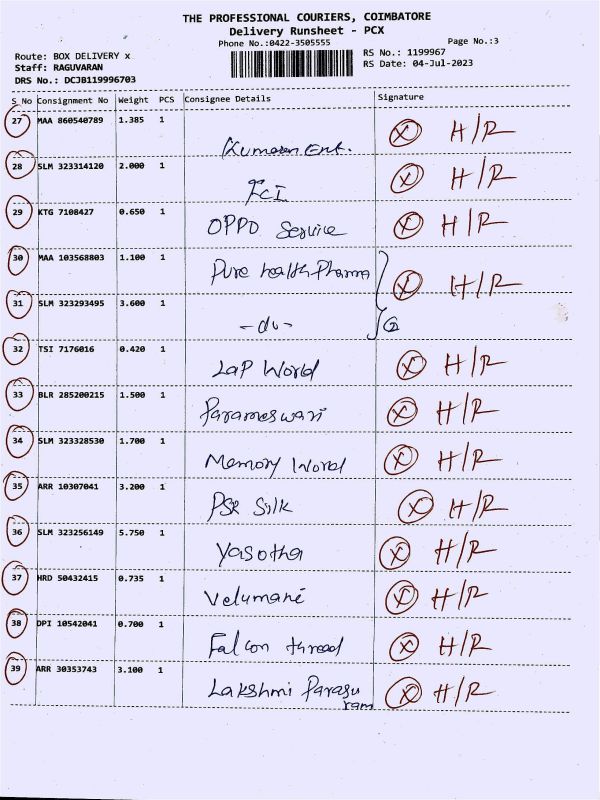 THE PROFESSIONAL COURIERS, COIMBATORE
Delivery Runsheet - PCX
Phone No.:0422-3505555
Page No.:3
Route: BOX DELIVERY x
RS No.: 1199967
Staff: RAGUVARAN
RS Date: 04-Jul-2023
DRS No.: DCJB119996703
S No Consignment No Weight PCS Consignee Details Signature
27 MAA 860540789 1.385 1 Kumaran Ent. X H/R
28 SLM 323314120 2.000 1 ICI X H/R
29 KTG 7108427 0.650 1 OPPO Service X H/R
30 MAA 103568803 1.100 1 Pure health Pharma X H/R
31 SLM 323293495 3.600 1 -do- 2
32 TSI 7176016 0.420 1 LaP World X H/R
33 BLR 285200215 1.500 1 Parameswari X H/R
34 SLM 323328530 1.700 1 Memory World X H/R
35 ARR 10307041 3.200 1 PSR Silk X H/R
36 SLM 323256149 5.750 1 Yasotha X H/R
37 HRD 50432415 0.735 1 Velumani X H/R
38 DPI 10542041 0.700 1 Falcon thread X H/R
39 ARR 30353743 3.100 1 Lakshmi Parasu X H/R
ram